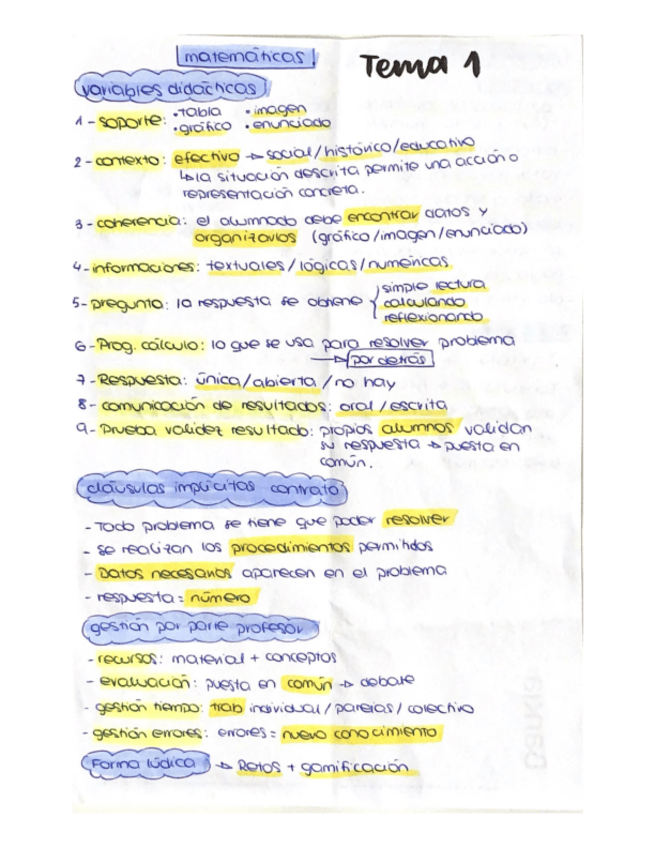 matemáticas! Tema 1
variables didácticas!
1 - soporte: • tabla • imagen
• gráfico • enunciado
2 - contexto: efectivo → social/histórico/educativo
↳ la situación descrita permite una acción o
representación concreta.
3 - coherencia: el alumnado debe encontrar datos y
organizarlos (gráfico/imagen/enunciado)
4 - informaciones: textuales/lógicas/numéricas
5 - pregunta: la respuesta se obtiene { simple lectura
calculando
reflexionando
6 - Prog. cálculo: lo que se usa para resolver problema
→ por detrás
7 - Respuesta: única/abierta/no hay
8 - comunicación de resultados: oral/escrita
9 - Prueba validez resultado: propios alumnos validan
su respuesta → puesta en
común.
cláusulas implícitas contrato
- Todo problema se tiene que poder resolver
- se realizan los procedimientos permitidos
- Datos necesarios aparecen en el problema
- respuesta = número
gestión por parte profesor
- recursos: material + conceptos
- evaluación: puesta en común → debate
- gestión tiempo: trab individual/parejas/colectivo
- gestión errores: errores = nuevo conocimiento
Forma lúdica → Retos + gamificación
Bankia